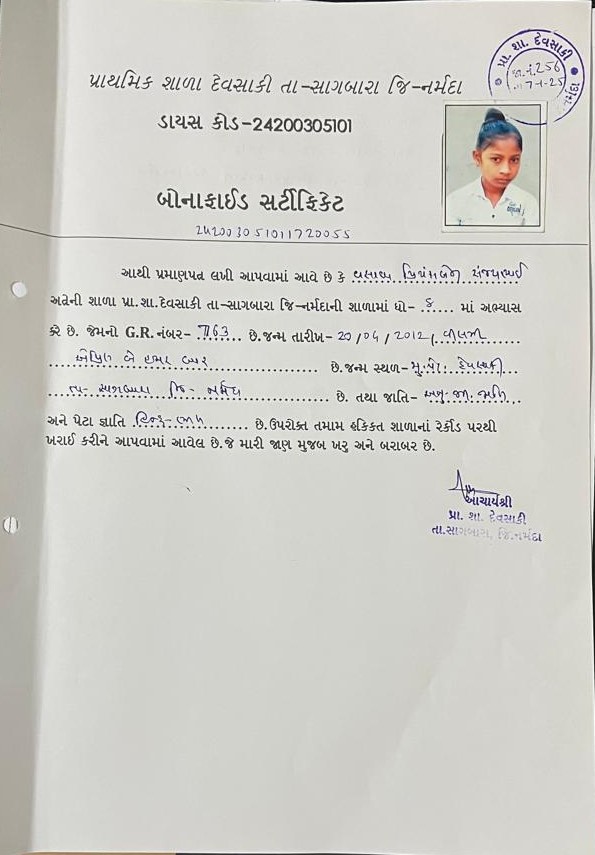 પ્રા. શા. દેવસાકી
જા.નં.256
તા.7-1-25
પ્રાથમિક શાળા દેવસાકી તા-સાગબારા જિ-નર્મદા
ડાયસ કોડ-24200305101
બોનાફાઈડ સર્ટીફિકેટ
242003051011720055
આથી પ્રમાણપત્ર લખી આપવામાં આવે છે કે વસાવા પ્રિયંકાબેન સંજયભાઈ
અત્રેની શાળા પ્રા.શા.દેવસાકી તા-સાગબારા જિ-નર્મદાની શાળામાં ધો- ૬ માં અભ્યાસ
કરે છે. જેમનો G.R. નંબર- ૧૧૬૩ છે.જન્મ તારીખ- 20/04/2012/ વીસમી
એપ્રિલ બે હજાર બાર છે.જન્મ સ્થળ- મુ.પો. દેવસાકી
તા- સાગબારા જિ- નર્મદા છે. તથા જાતિ- અનુ.જન.જાતિ
અને પેટા જ્ઞાતિ હિન્દુ-ભીલ છે.ઉપરોક્ત તમામ હકિકત શાળાનાં રેકૉડ પરથી
ખરાઈ કરીને આપવામાં આવેલ છે.જે મારી જાણ મુજબ ખરુ અને બરાબર છે.
આચાર્યશ્રી
પ્રા. શા. દેવસાકી
તા.સાગબારા, જિ.નર્મદા